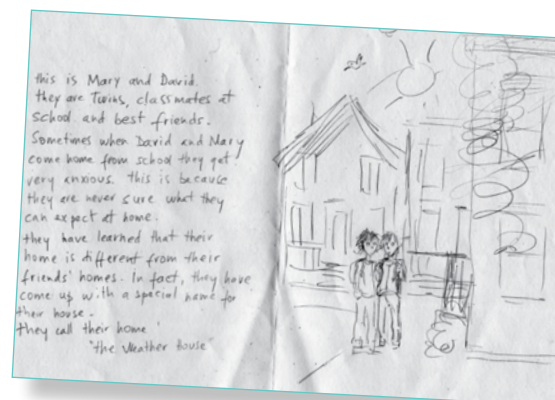 this is Mary and David.
they are Twins, classmates at
school and best friends.
Sometimes when David and Mary
come home from school they get
very anxious. this is because
they are never sure what they
can expect at home.
they have learned that their
home is different from their
friends' homes. In fact, they have
come up with a special name for
their house.
they call their home
"the Weather House"